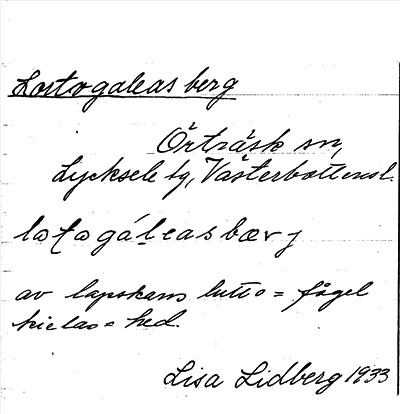 Lostogaleas berg
Örträsk sn,
Lycksele tg, Västerbottensl.
av lapskans lutto = fågel
kielas = hed.
Lisa Lidberg 1933